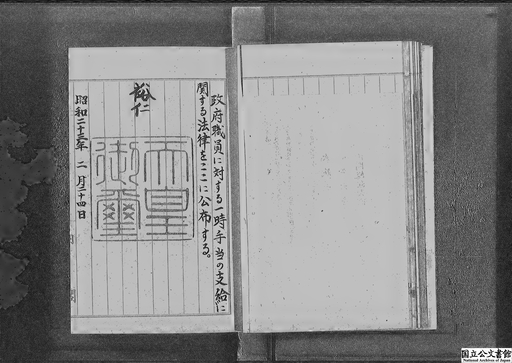 政府職員に対する一時手当の支給に
関する法律をここに公布する。
裕仁
天皇
御璽
昭和二十三年 二月二十四日
国立公文書館
National Archives of Japan